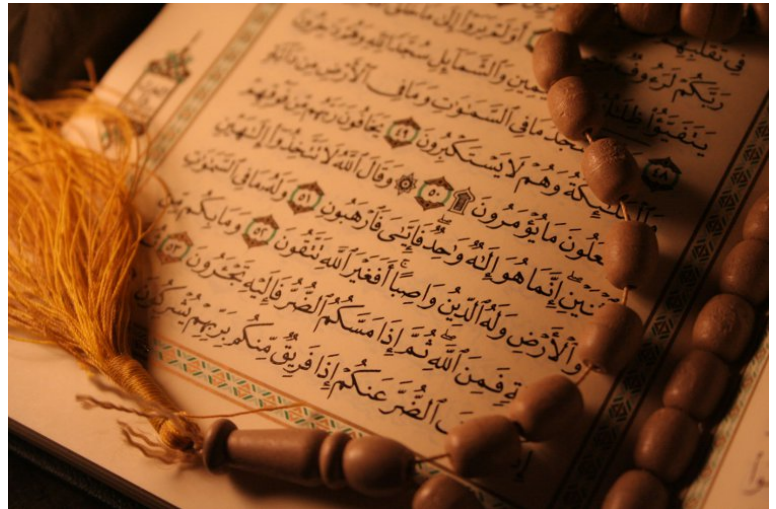 فِي تَقَلُّبِهِمْ
رَبَّكُمْ لَرَءُوفٌ أَوَلَمْ يَرَوْا۟ إِلَىٰ مَا خَلَقَ
يَتَفَيَّؤُا۟ ظِلَٰلُهُۥ ٱلْيَمِينِ وَٱلشَّمَآئِلِ سُجَّدًا لِّلَّهِ وَهُمْ دَٰخِرُونَ ٤٨
يَسْجُدُ مَا فِي ٱلسَّمَٰوَٰتِ وَمَا فِي ٱلْأَرْضِ مِن دَآبَّةٍ
وَٱلْمَلَٰٓئِكَةُ وَهُمْ لَا يَسْتَكْبِرُونَ ٤٩ يَخَافُونَ رَبَّهُم مِّن فَوْقِهِمْ
مَا يُؤْمَرُونَ ۩ ٥٠ ۞ وَقَالَ ٱللَّهُ لَا تَتَّخِذُوٓا۟ إِلَٰهَيْنِ
إِنَّمَا هُوَ إِلَٰهٌ وَٰحِدٌ فَإِيَّٰيَ فَٱرْهَبُونِ ٥١ وَلَهُۥ مَا فِي ٱلسَّمَٰوَٰتِ
وَٱلْأَرْضِ وَلَهُ ٱلدِّينُ وَاصِبًا ۚ أَفَغَيْرَ ٱللَّهِ تَتَّقُونَ ٥٢ وَمَا بِكُم مِّن
فَمِنَ ٱللَّهِ ۖ ثُمَّ إِذَا مَسَّكُمُ ٱلضُّرُّ فَإِلَيْهِ تَجْـَٔرُونَ ٥٣
ٱلضُّرَّ عَنكُمْ إِذَا فَرِيقٌ مِّنكُم بِرَبِّهِمْ يُشْرِكُونَ